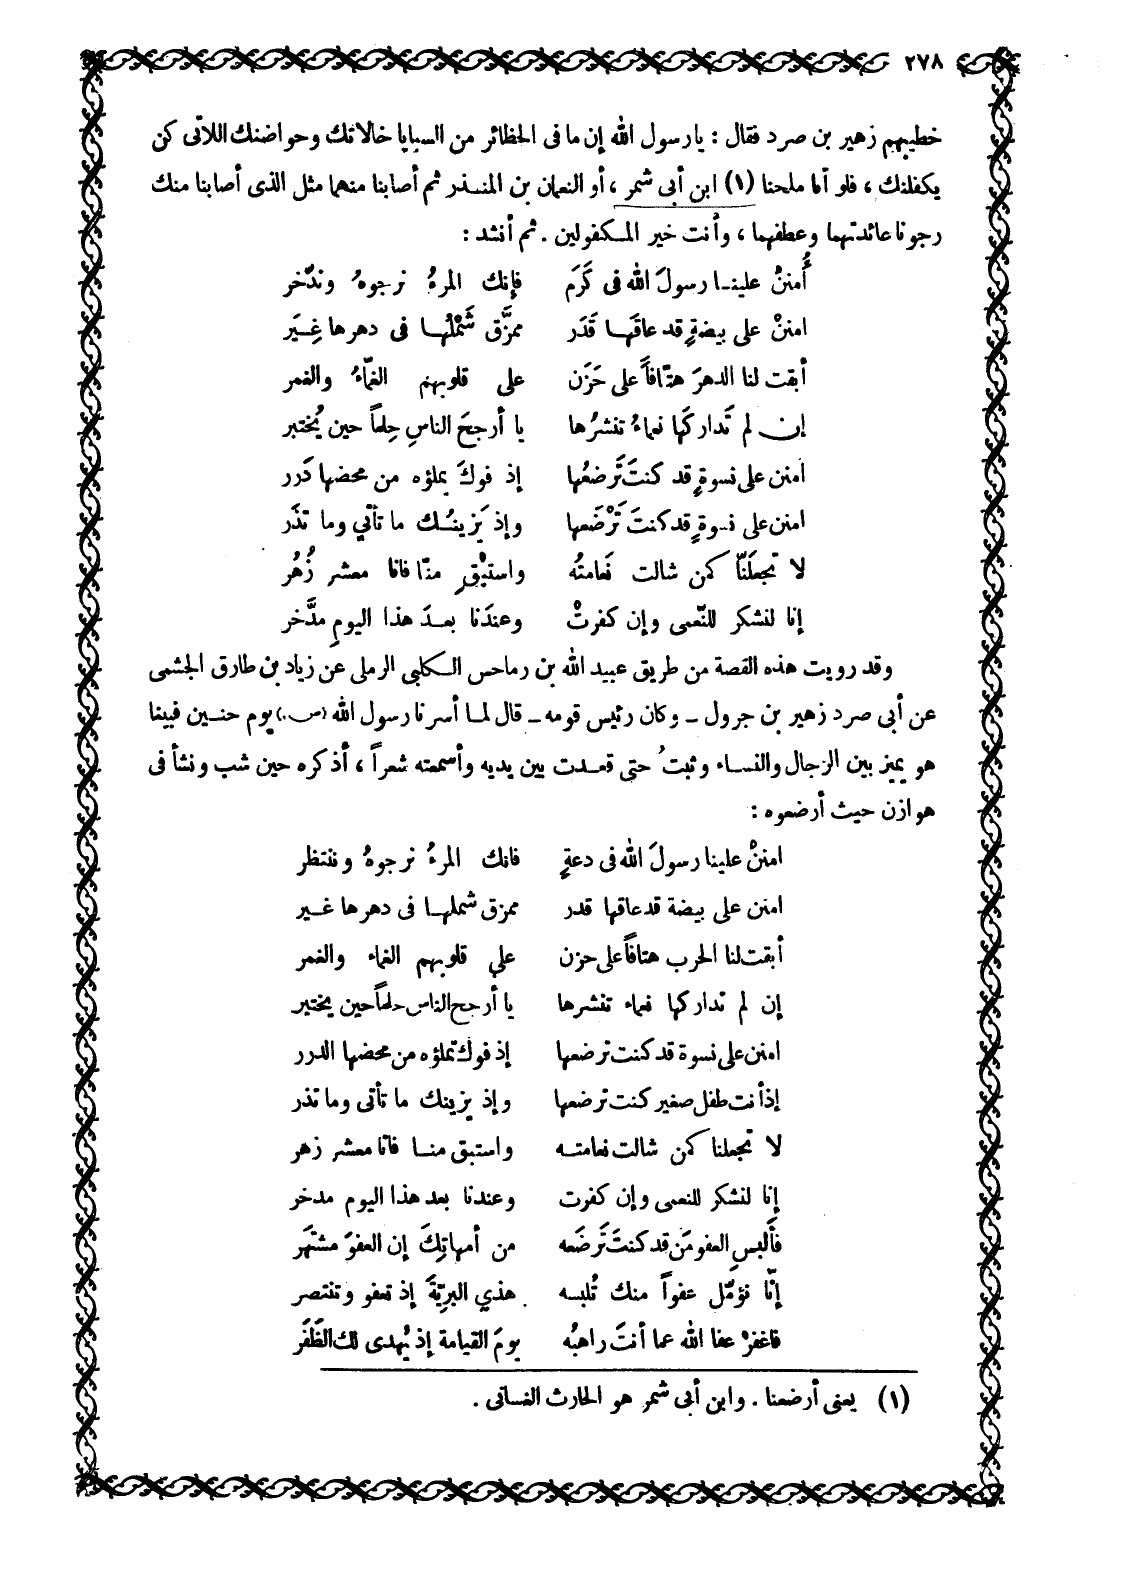 ٢٧٨
خطيبهم زهير بن صرد فقال : يارسول الله إن ما فى الحظائر من السبايا خالاتك وحواضنك اللاتى كن
يكفلنك ، فلو أنا ملحنا (١) ابن أبى شمر ، أو النعمان بن المنذر ثم أصابنا منهما مثل الذى أصابنا منك
رجونا عائدتهما وعطفهما ، وأنت خير المكفولين . ثم أنشد :
أُمننْ علينا رسولَ الله فى كَرَم فإنك المرءُ نرجوهُ وندّخر
امننْ على بيضةٍ قد عاقَها قَدَر ممزَّق شَمْلُها فى دهرها غِيَر
أبقت لنا الدهرَ هتّافاً على حَزَن على قلوبهم الغمّاءُ والغمر
إن لم تَداركَها نعماءُ تنشرُها يا أرجحَ الناسِ حِلماً حين يُختبر
امنن على نسوةٍ قد كنتَ تَرضعُها إذ فوكَ يملؤه من محضها دَرر
امنن على نسوةٍ قد كنتَ تَرْضَعها وإذ يَزينُك ما تأتي وما تذَر
لا تجعلَنّا كمن شالت نَعامتُه واستبْقِ منّا فانا معشر زُهُر
إنا لنشكر للنّعمى وإن كفرتْ وعندَنا بعدَ هذا اليومِ مدَّخر
وقد رويت هذه القصة من طريق عبيد الله بن رماحس الكلبى الرملى عن زياد بن طارق الجشمى
عن أبى صرد زهير بن جرول ــ وكان رئيس قومه ــ قال لما أسرنا رسول الله (ص.) يوم حنين فبينا
هو يميز بين الرجال والنساء وثبتُ حتى قعدت بين يديه وأسمعته شعراً ، أذكره حين شب ونشأ فى
هوازن حيث أرضعوه :
امننْ علينا رسولَ الله فى دعةٍ فانك المرءُ نرجوهُ وننتظر
امنن على بيضة قد عاقها قدر ممزق شملها فى دهرها غير
أبقت لنا الحرب هتافاً على حزن علي قلوبهم الغماء والغمر
إن لم تداركها نعماء تنشرها يا أرجح الناس حلماً حين يختبر
امنن على نسوة قد كنت ترضعها إذ فوك تملؤه من محضها الدرر
إذ أنت طفل صغير كنت ترضعها وإذ يزينك ما تأتى وما تذر
لا تجعلنا كمن شالت نعامته واستبق منا فانا معشر زهر
إنا لنشكر للنعمى وإن كفرت وعندنا بعد هذا اليوم مدخر
فألبسِ العفو مَن قد كنتَ تَرضَعه من أمهاتِكَ إن العفوَ مشتهَر
إنّا نؤمّل عفواً منك تُلبسه هذي البريّةَ إذ تعفو وتنتصر
فاغفرْ عفا الله عما أنتَ راهبُه يومَ القيامة إذ يُهدى لك الظَفَر
(١) يعنى أرضعنا . وابن أبى شمر هو الحارث الغسانى .